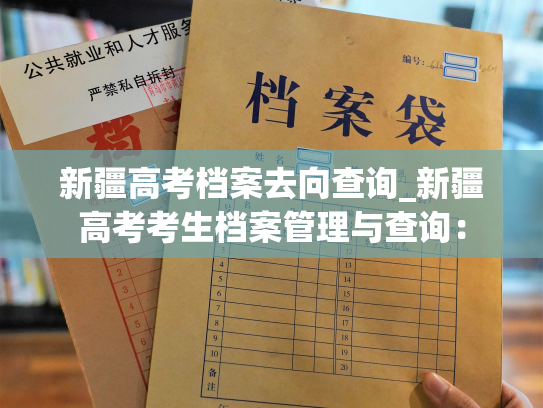 公共就业和人才服务
严禁私自拆封
编号:
档案袋
姓名
新疆高考档案去向查询_新疆
高考考生档案管理与查询:
5
6
7
8
9
10
14
15
16
17
18
19
20
备注